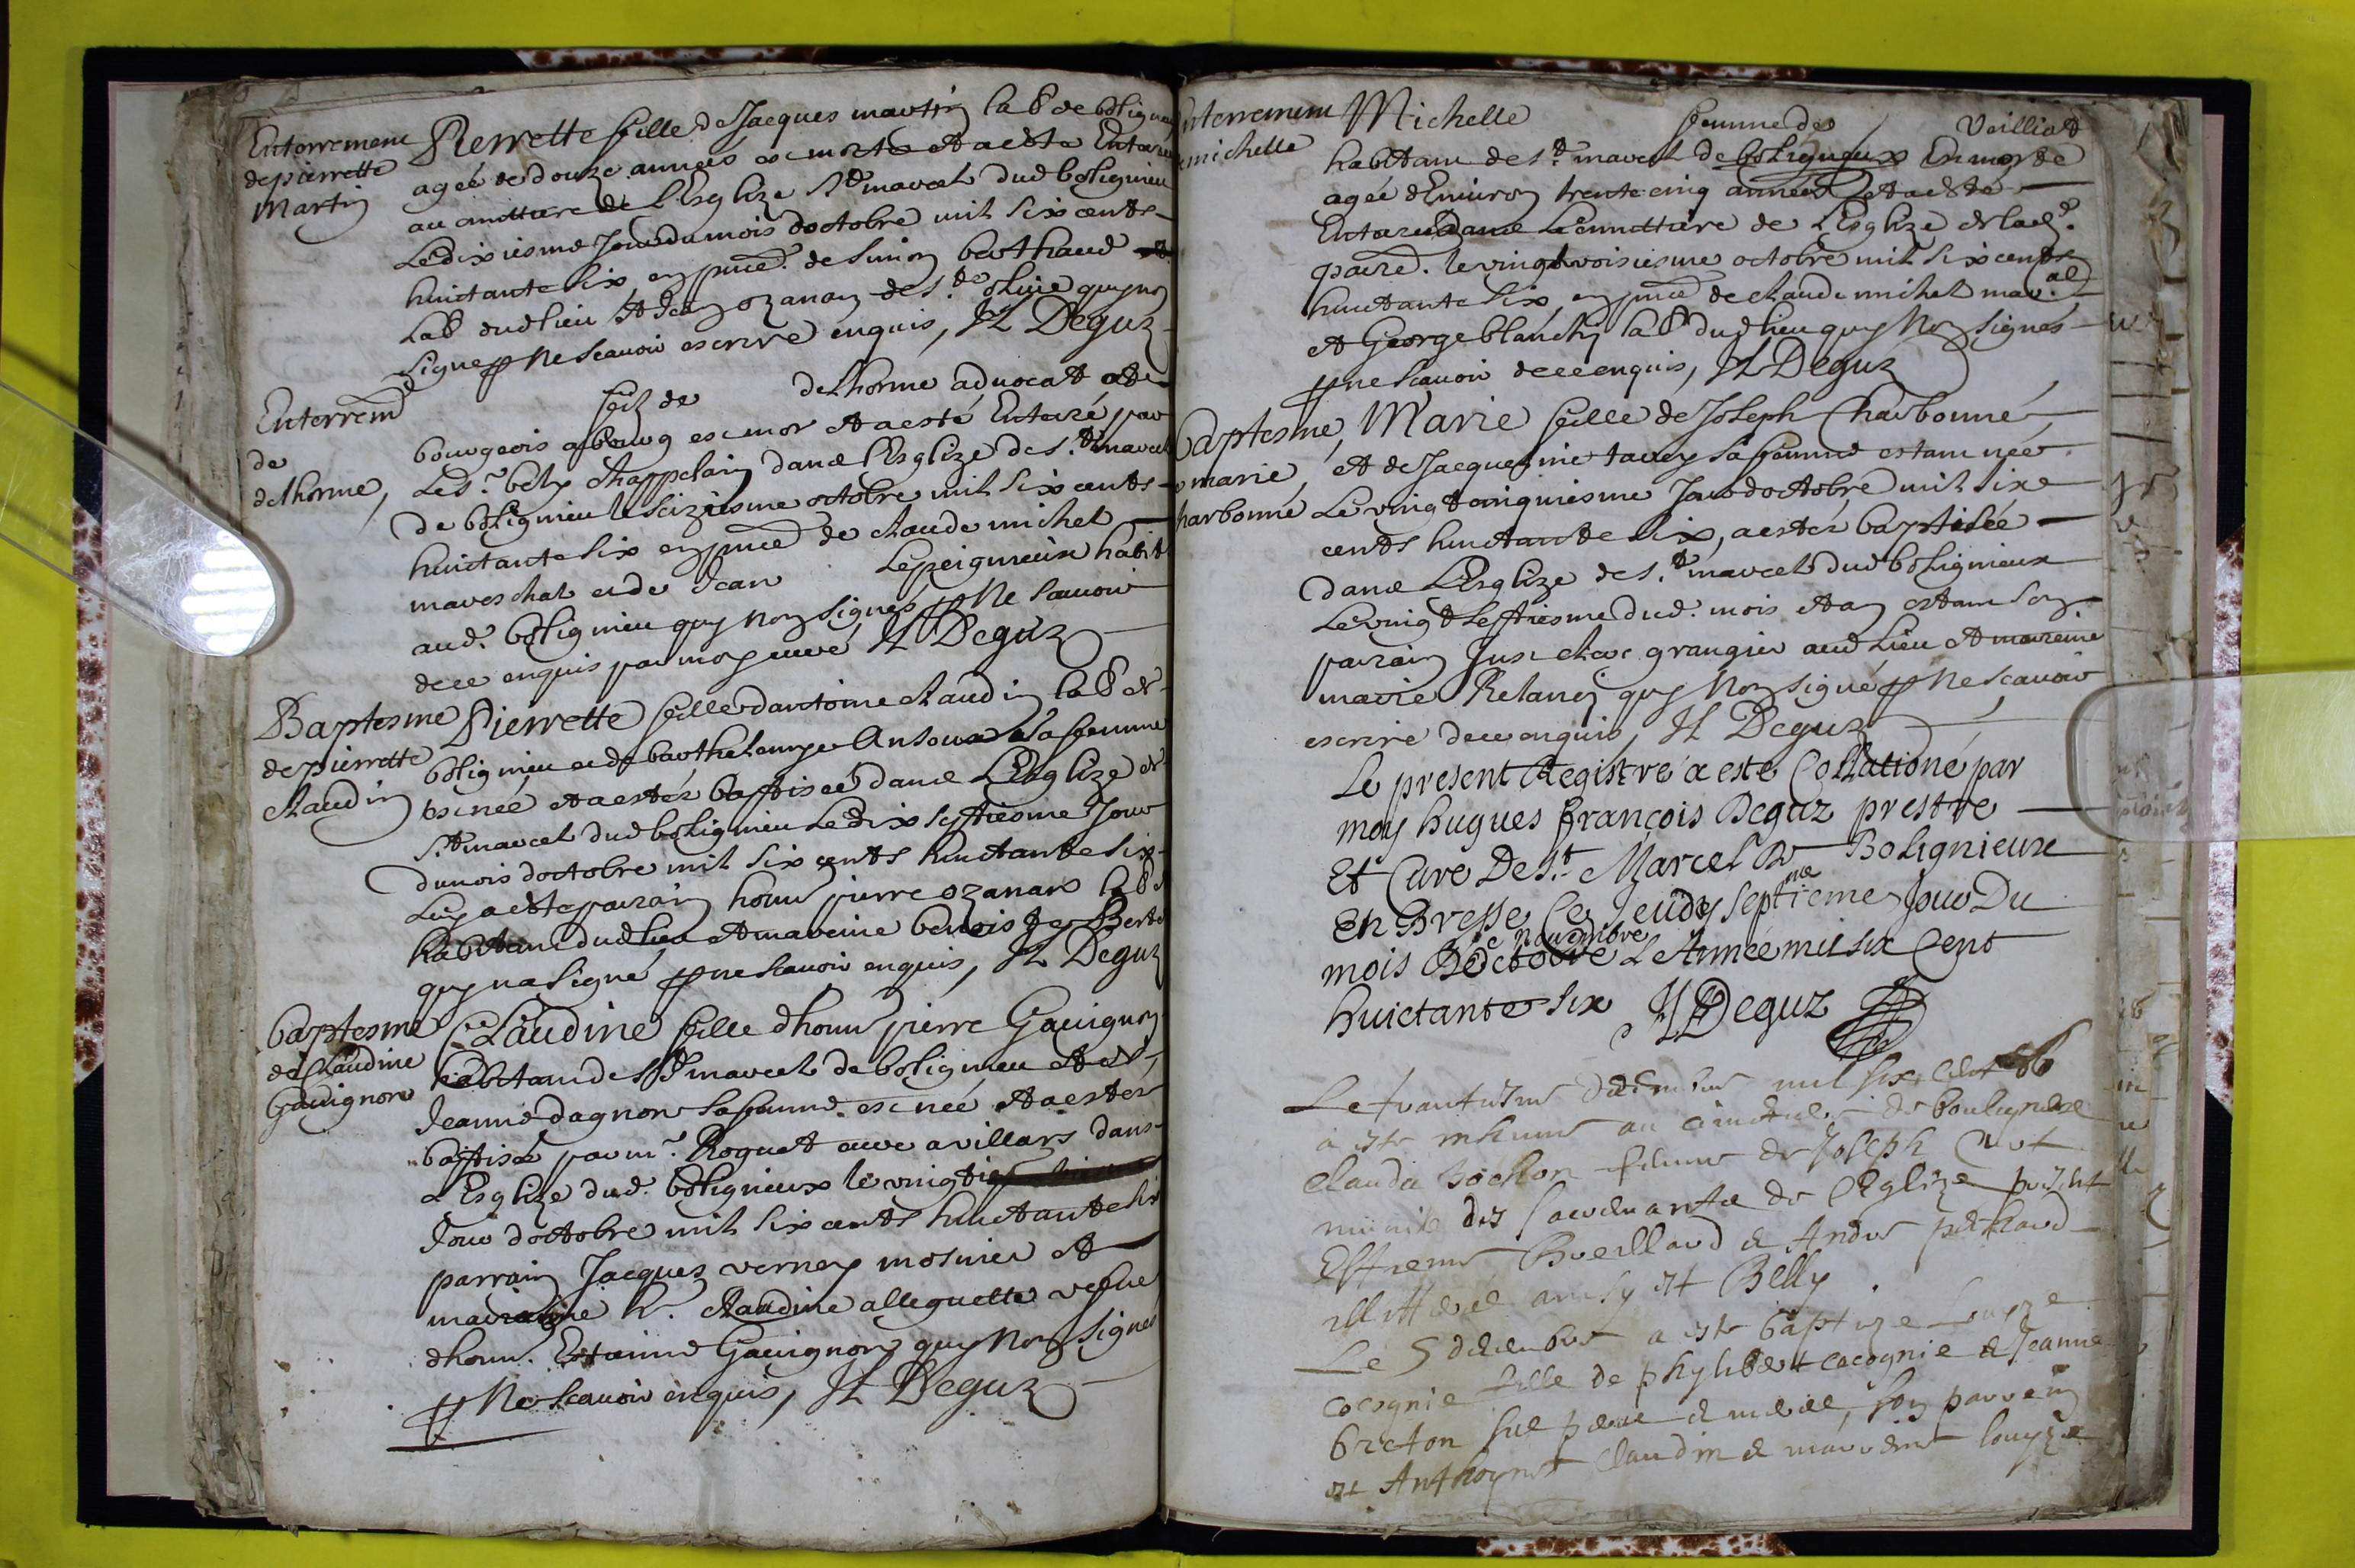 Enterrement
de pierrette
Martin
Pierrette fille de Jacques martin lab.r de boligneu
agée de douze années est morte et a esté Enterré
au cimittiere de l'Esglize St marcel dud boligneu
Le dixiesme Jour du mois doctobre mil six cents
huictante six en pnce de Simon berthaud et
lab.r dud lieu et Jean ozanan de s.te olive quy non
signe p ne scavoir escrire enquis, H Deguz
Enterrem.t
de
delhorme,
filz de delhorme advocat et
bourgeois a bourg est mor et a esté Enterré par
Le s.r bely Chappelain dans l'Esglize de s.t marcel
de bolignieu le seiziesme octobre mil six cents
huictante six en pnce de claude michel
mareschal et de Jean Lepeigneux habit
aud. bolignieu quy non signés p ne scavoir
de ce enquis par moy curé H Deguz
Baptesme
de pierrette
claudin
Pierrette fille dantoine claudin lab.r de
bolignieu et de barthelemye sa femme
est née et a estés baptisée dans L'Esglize de
S.t marcel dud bolignieu Le dix septiesme Jour
du mois doctobre mil six cents huictante six
Luy a esté parain honn pierre ozanan lab.r
habitant dud lieu et mareine benoiste
quy na signé p ne scavoir enquis, H Deguz
baptesme
de Claudine
Gavignon
Claudine fille dhonn pierre Gavignon
habitant de St marcel de bolignieu et de
Jeanne dagnon sa femme est née et a estés
baptisé par m.r Roquet curé a villars dans
L'Esglize dud. bolignieux le vingtiesme
Jour doctobre mil six cents huictante six
parrain Jacques verney mosnier et
maraine h. claudine alleguette vefve
dhonn. Estienne Gavignon quy non signés
p ne scavoir enquis, H Deguz
Enterrement
de michelle
Michelle femme de Veilliat
habitant de s.t marcel de bolignieux Est morte
agée d'Environ trente cinq années et a esté
Enterré dans Le cimittiere de L'Esglize de lad.e
paroi. le vingt troisiesme octobre mil six cents
huictante six en pnce de claude michel mar.al
et George blanchy lab.r dud lieu quy non signés
p ne scavoir de ce enquis, H Deguz
Baptesme,
de marie
Charbonné
Marie fille de Joseph Charbonné,
et de Jacquemine tavey sa femme estant née
Le vingt cinquiesme Jour doctobre mil sixe
cents huictante six, a estés baptisée
dans L'Esglize de s.t marcel dud bolignieux
Le vingt septiesme dud. mois et an estant son
parain Just grangier aud lieu et mareine
marie Relanin quy non signé p ne scavoir
escrire de ce enquis, H Deguz
Le present Registre a este Collationé par
moy hugues François Deguz prestre
Et Curé De S.t Marcel De Bolignieux
En Bresse Ce Jeudy septieme Jour Du
mois De novembre L'Année mil six Cent
huictante six H Deguz
Le trantiesme decembre mil six cent 86
a este inhumé au cimetiere de Boulignieux
Claudia Bochon femme de Joseph Cret
munie des sacremants de l'Eglize presant
Estienne Breilland & André perraud
illitteré ainsy est Belly.
Le 5 decembre a este baptize Louyze
cocognie fille de phylibert cocognie & Jeanne
breton ses pere & mere, son parrein
est Anthoyne Claudin & marreine louyze